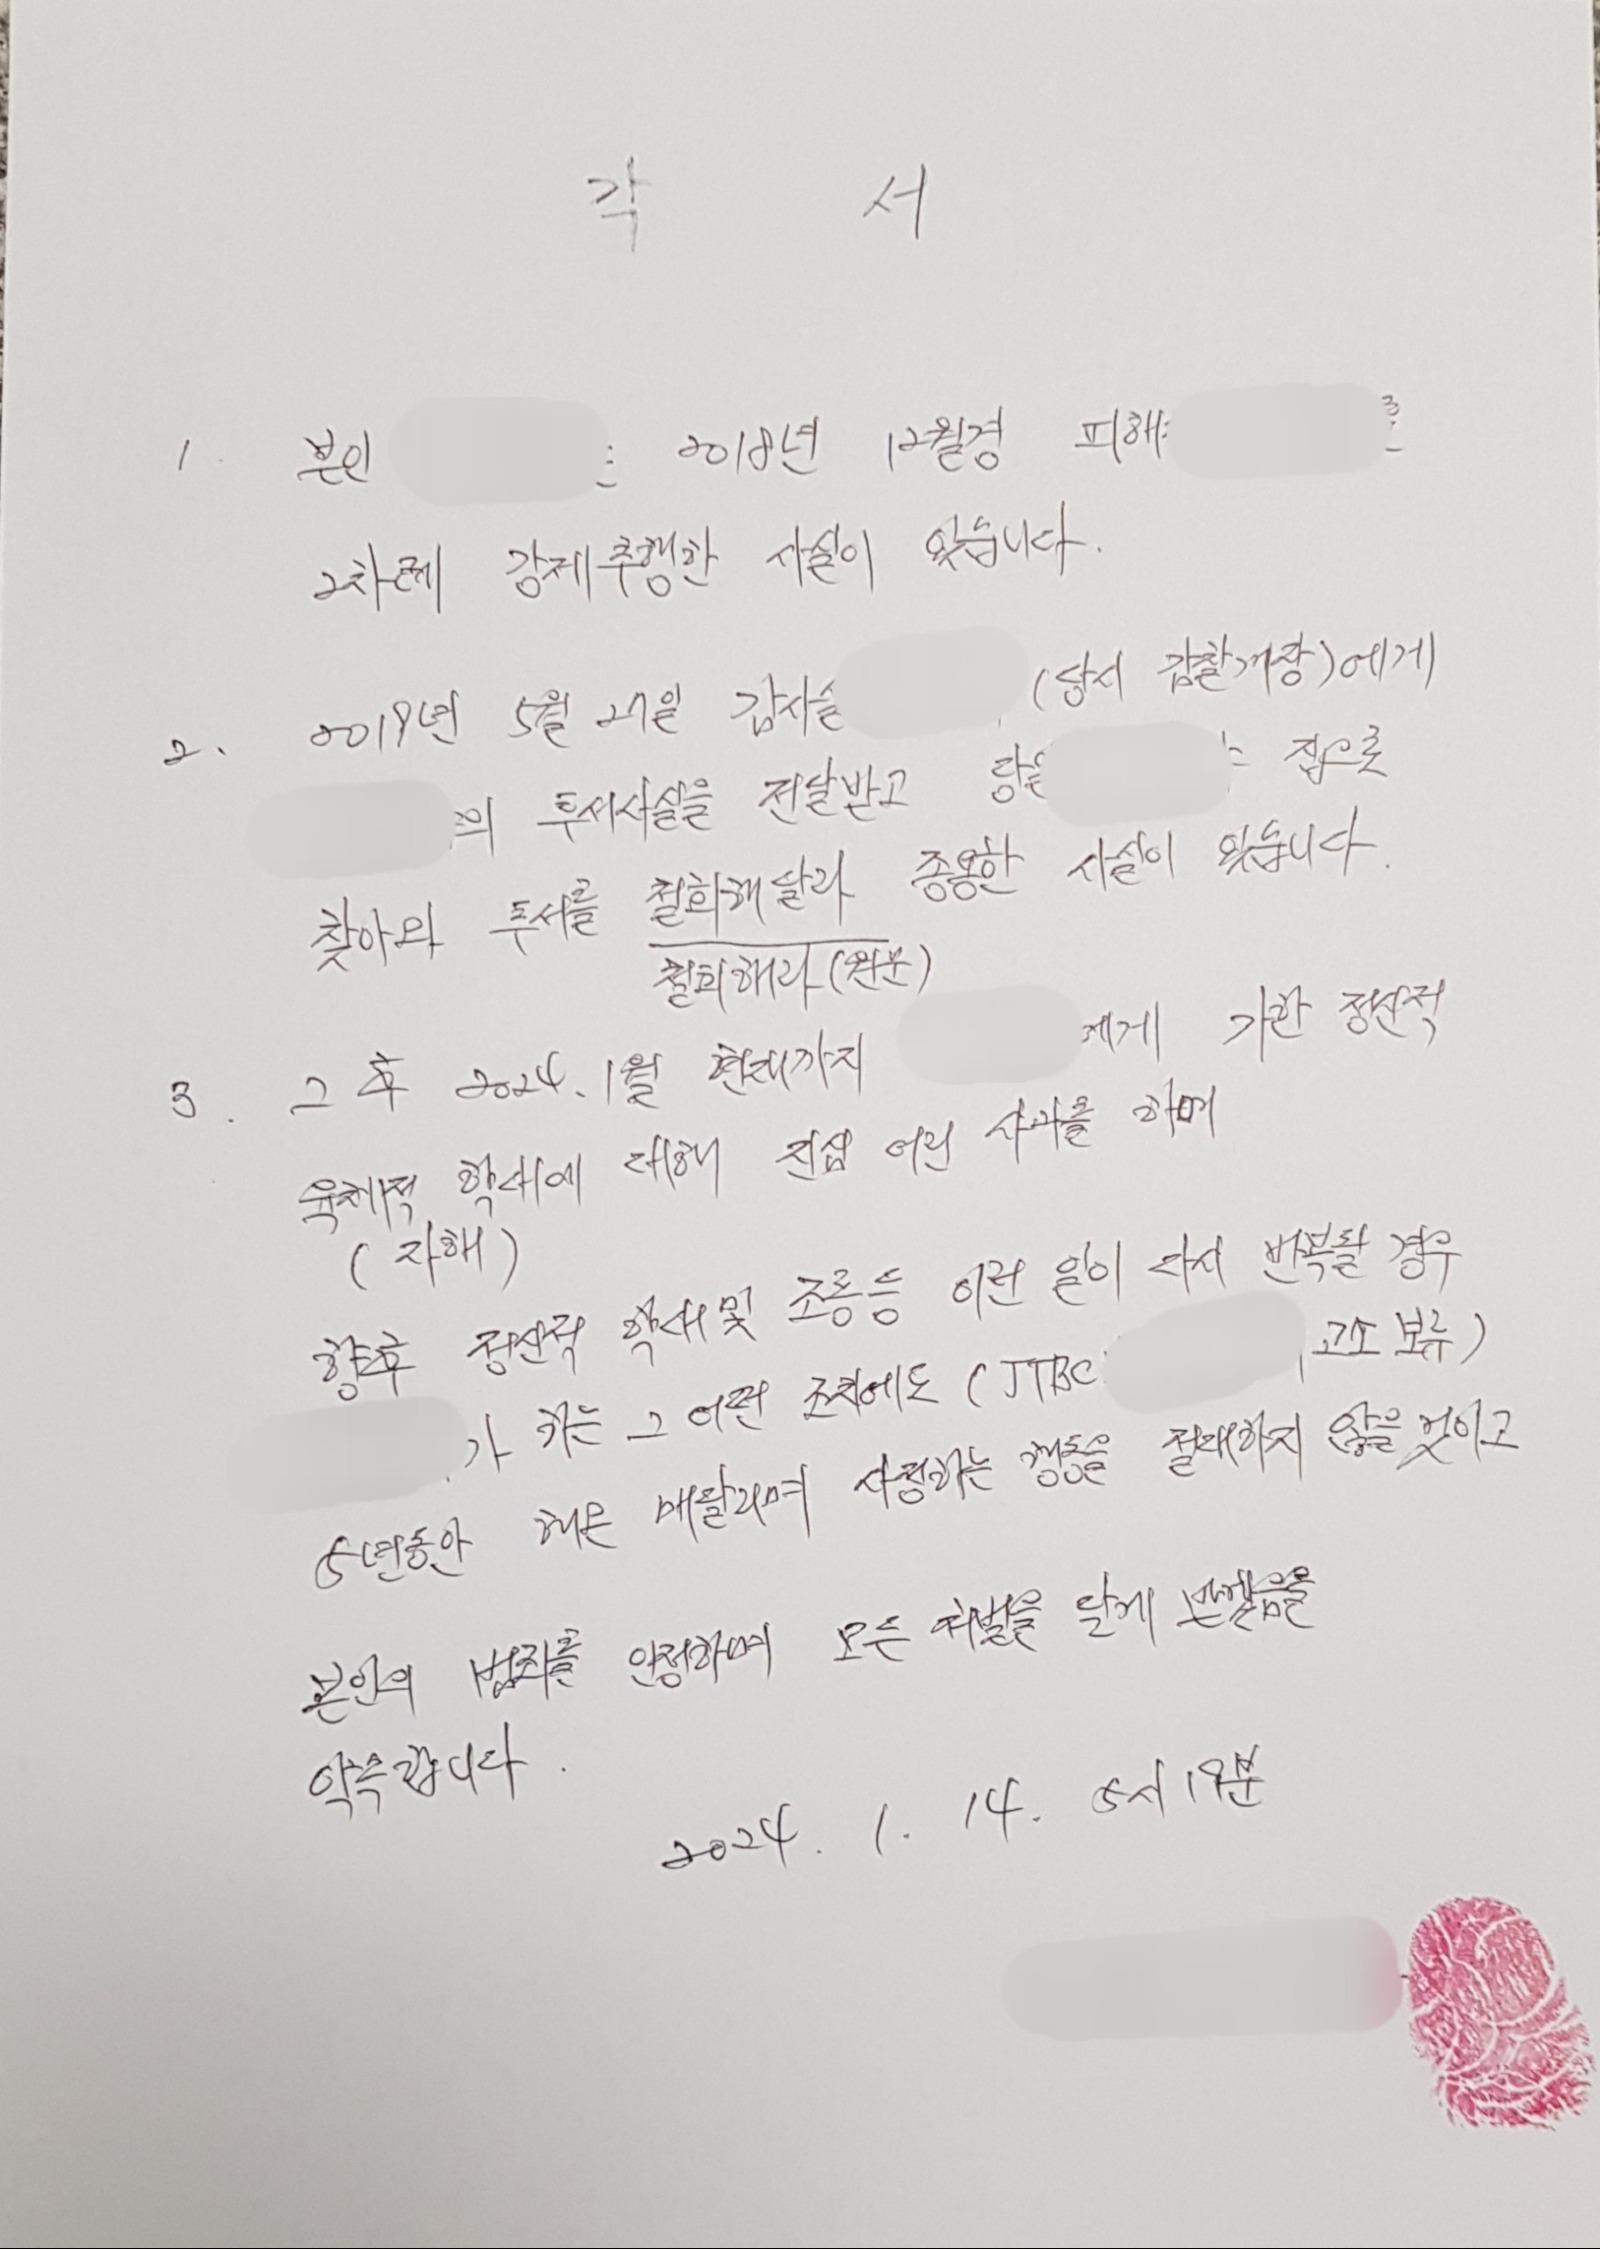 각 서
1. 본인 2018년 12월경 피해
2차례 강제추행한 사실이 있습니다.
2. 2019년 5월 27일 감사실 (당시 감찰계장)에게
의 투서사실을 전달받고 당일 집으로
찾아와 투서를 철회해달라 종용한 사실이 있습니다.
철회해라(원문)
3. 그 후 2024. 1월 현재까지 에게 가한 정신적
육체적 학대에 대해 진심 어린 사과를 하며
(자해)
향후 정신적 학대 및 조롱 등 이런 일이 다시 반복될 경우
가 하는 그 어떤 조치에도 (JTBC 고소 보류)
5년동안 해온 매달리며 사정하는 행동을 절대하지 않을 것이고
본인의 범죄를 인정하며 모든 처벌을 달게 받을
약속합니다.
2024. 1. 14. 5시 19분